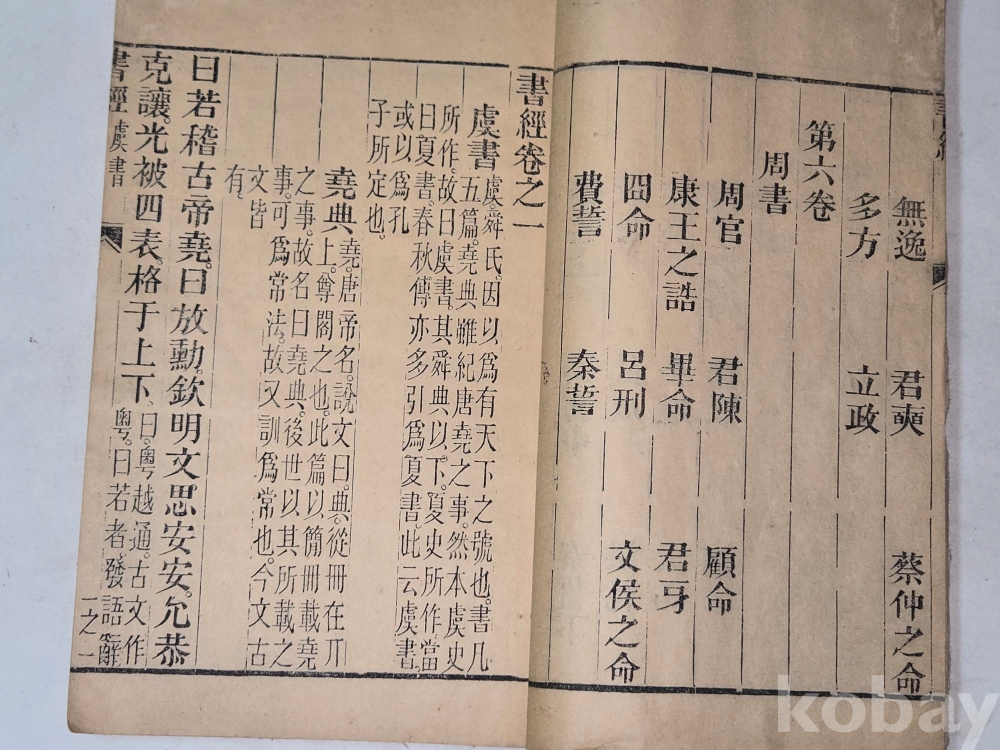 無逸 君奭 蔡仲之命
多方 立政
第六卷
周書
周官 君陳 顧命
康王之誥 畢命 君牙
冏命 呂刑 文侯之命
費誓 秦誓
書經卷之一
虞書 虞。舜氏。因以爲有天下之號也。書凡
五篇。堯典雖紀唐堯之事。然本虞史
所作。故曰虞書。其舜典以下。夏史所作。當
曰夏書。春秋傳亦多引爲夏書。此云虞書。
或以爲孔
子所定也。
堯典 堯。唐帝名。說文曰。典。從冊在丌
上。尊閣之也。此篇以簡冊載堯
之事。故名曰堯典。後世以其所載之
事。可爲常法。故又訓爲常也。今文古
文皆
有。
曰若稽古帝堯。曰放勳。欽明文思安安。允恭
克讓。光被四表。格于上下、曰。粵越通。古文作
粵。曰若者。發語辭
書經 虞書 一之一
kobay